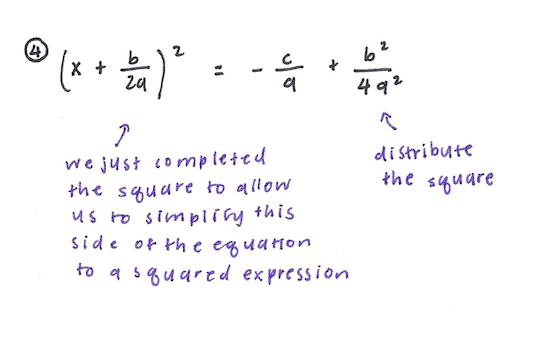 ④ (x + b/2a)² = - c/a + b²/4a²
we just completed
the square to allow
us to simplify this
side of the equation
to a squared expression
distribute
the square